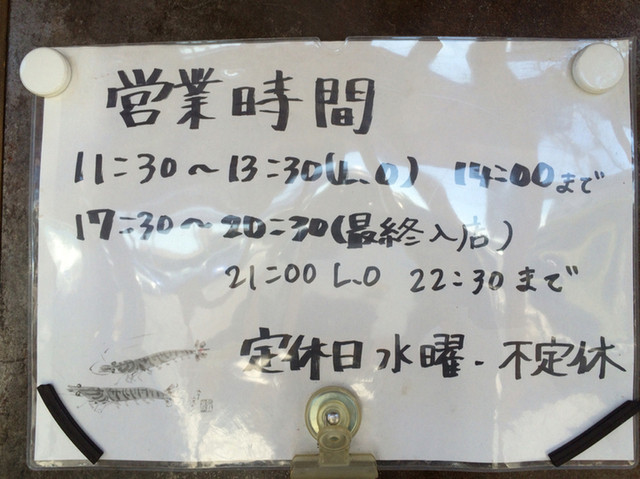 営業時間
11:30〜13:30(L.O) 14:00まで
17:30〜20:30(最終入店)
21:00 L.O 22:30まで
定休日水曜.不定休